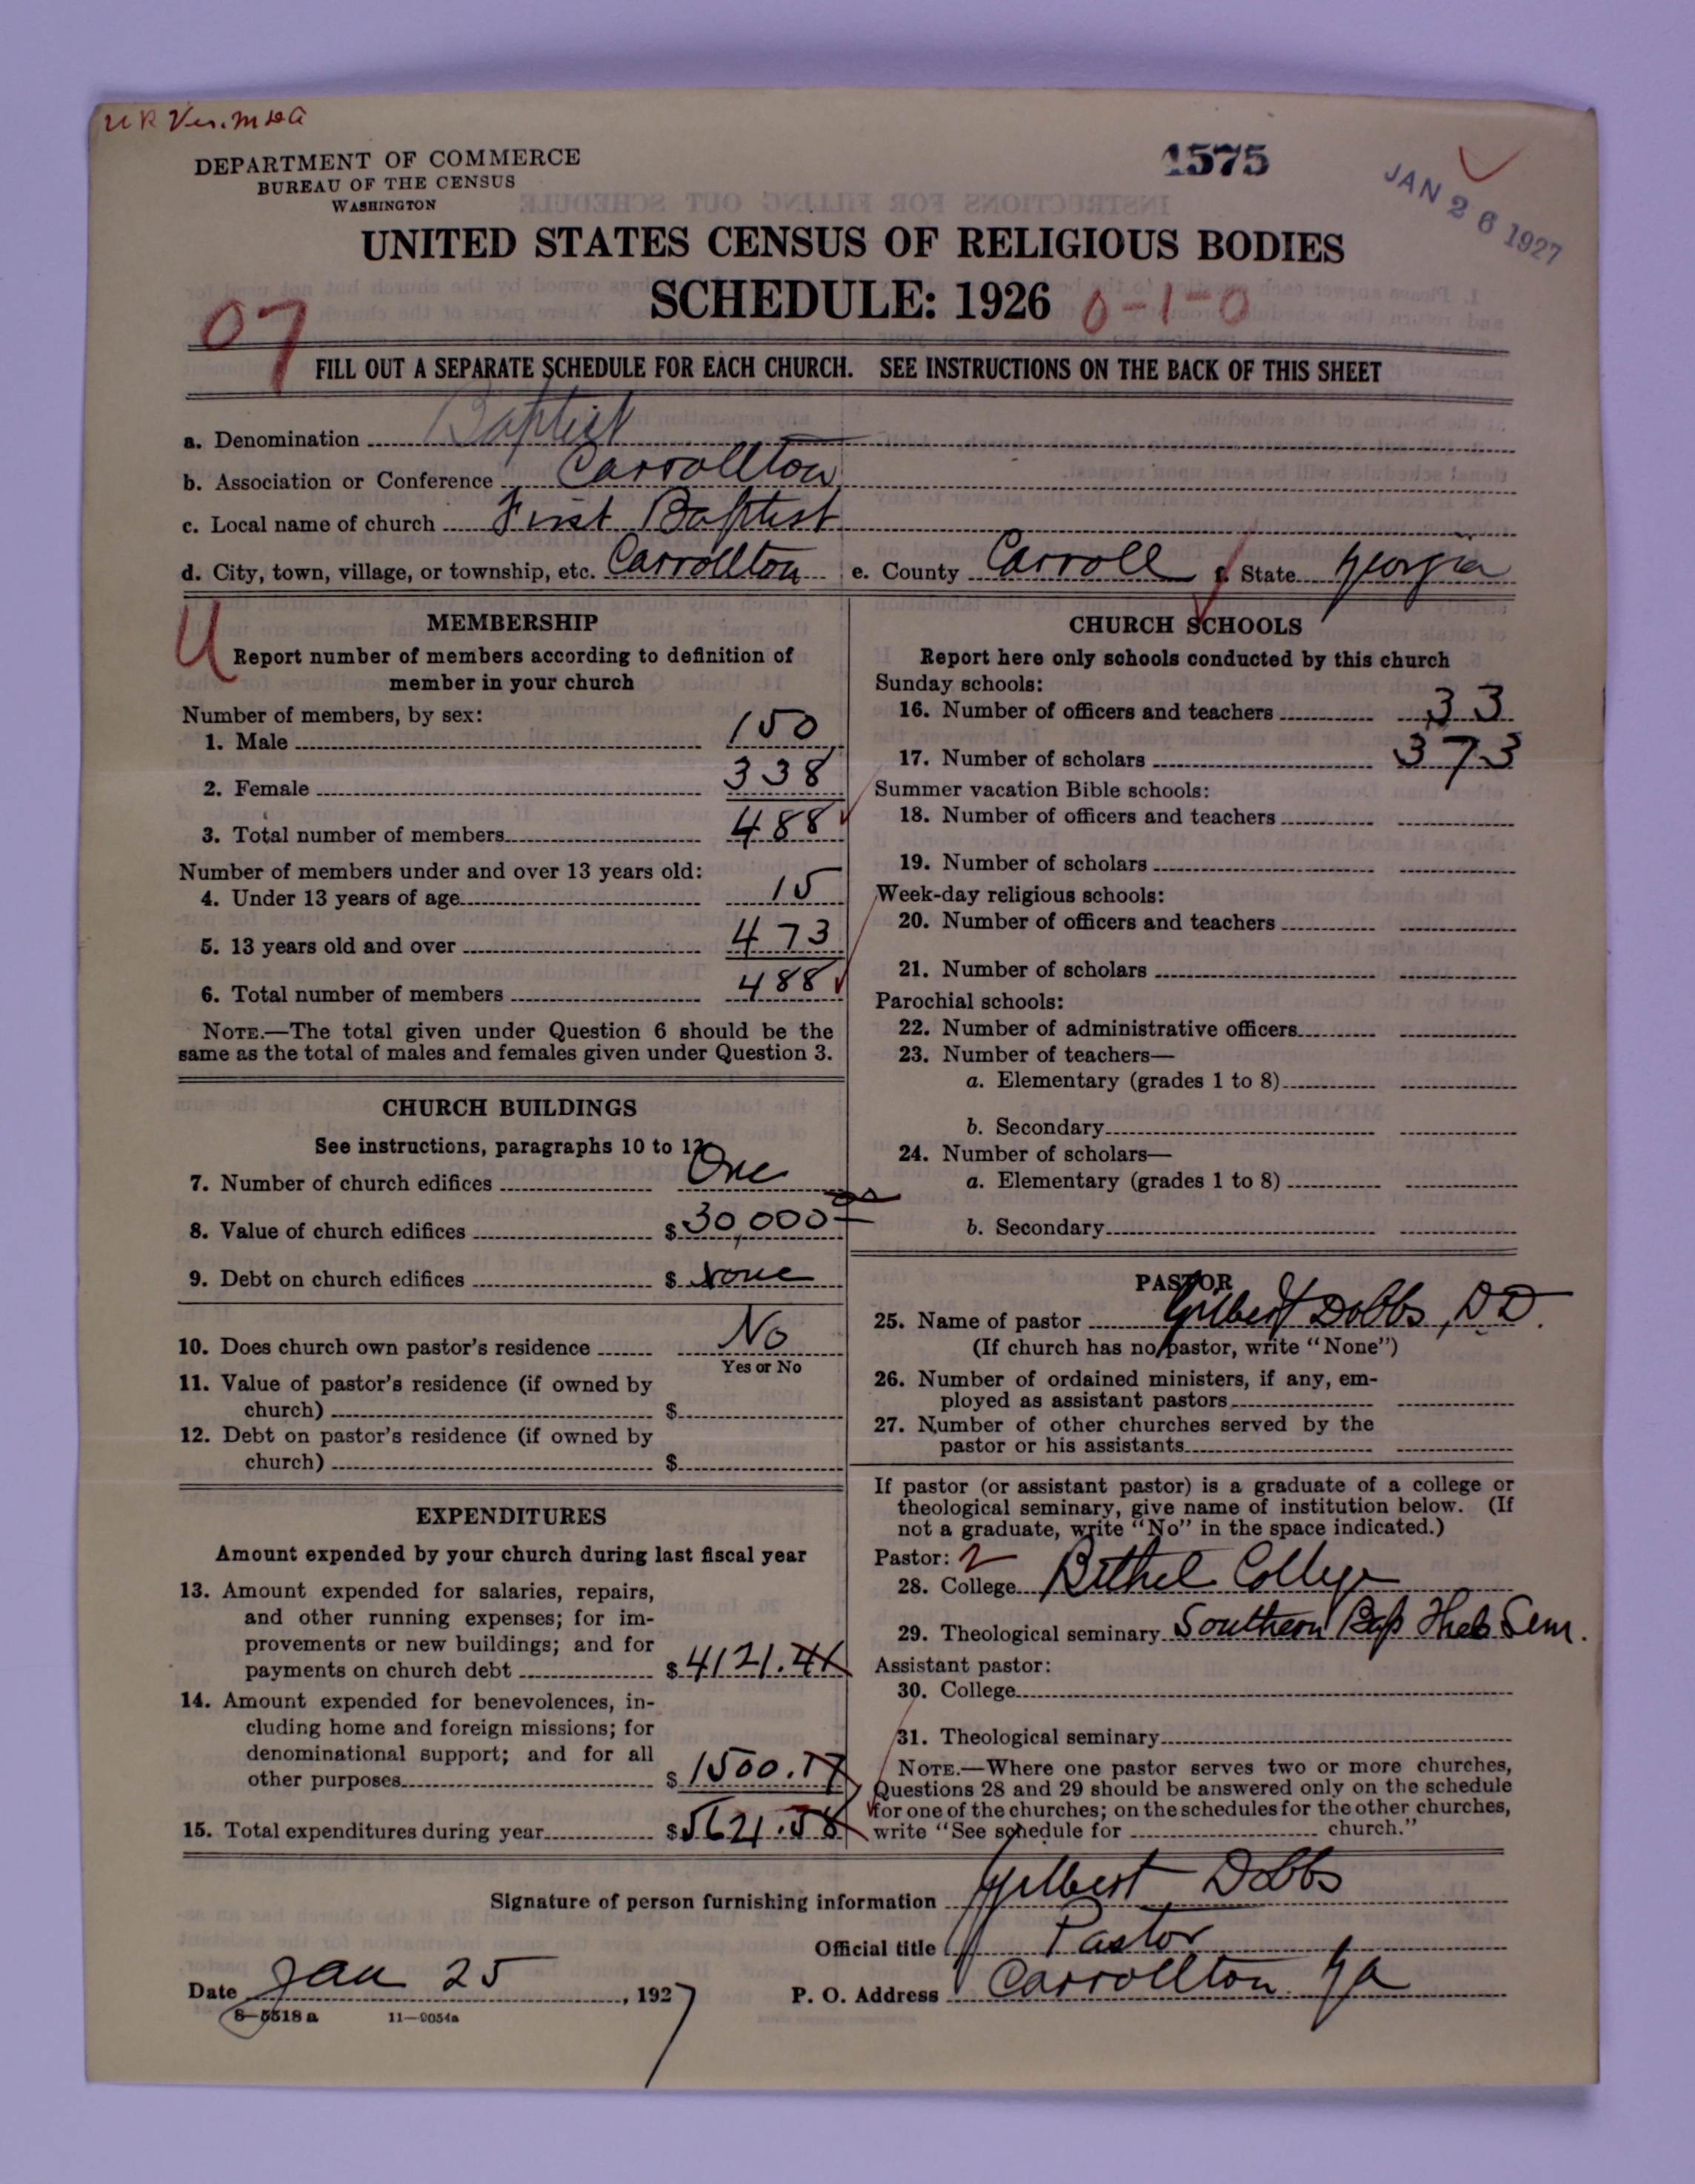 DEPARTMENT OF COMMERCE
BUREAU OF THE CENSUS
WASHINGTON
1575
JAN 26 1927
UNITED STATES CENSUS OF RELIGIOUS BODIES
SCHEDULE: 1926
0-1-0
07
FILL OUT A SEPARATE SCHEDULE FOR EACH CHURCH. SEE INSTRUCTIONS ON THE BACK OF THIS SHEET
a. Denomination Baptist
b. Association or Conference Carrollton
c. Local name of church First Baptist
d. City, town, village, or township, etc. Carrollton e. County Carroll f. State Georgia
U
MEMBERSHIP
Report number of members according to definition of
member in your church
Number of members, by sex:
1. Male 150
2. Female 338
3. Total number of members 488
Number of members under and over 13 years old:
4. Under 13 years of age 15
5. 13 years old and over 473
6. Total number of members 488
NOTE.—The total given under Question 6 should be the
same as the total of males and females given under Question 3.
CHURCH BUILDINGS
See instructions, paragraphs 10 to 12
7. Number of church edifices One
8. Value of church edifices $30,000
9. Debt on church edifices $ None
10. Does church own pastor's residence No
Yes or No
11. Value of pastor's residence (if owned by
church) $
12. Debt on pastor's residence (if owned by
church) $
EXPENDITURES
Amount expended by your church during last fiscal year
13. Amount expended for salaries, repairs,
and other running expenses; for im-
provements or new buildings; and for
payments on church debt $4121.41
14. Amount expended for benevolences, in-
cluding home and foreign missions; for
denominational support; and for all
other purposes $1500.17
15. Total expenditures during year $5621.58
CHURCH SCHOOLS
Report here only schools conducted by this church
Sunday schools:
16. Number of officers and teachers 33
17. Number of scholars 373
Summer vacation Bible schools:
18. Number of officers and teachers
19. Number of scholars
Week-day religious schools:
20. Number of officers and teachers
21. Number of scholars
Parochial schools:
22. Number of administrative officers
23. Number of teachers—
a. Elementary (grades 1 to 8)
b. Secondary
24. Number of scholars—
a. Elementary (grades 1 to 8)
b. Secondary
PASTOR
25. Name of pastor Gilbert Dobbs, D.D.
(If church has no pastor, write "None")
26. Number of ordained ministers, if any, em-
ployed as assistant pastors
27. Number of other churches served by the
pastor or his assistants
If pastor (or assistant pastor) is a graduate of a college or
theological seminary, give name of institution below. (If
not a graduate, write "No" in the space indicated.)
Pastor: 2
28. College Bethel College
29. Theological seminary Southern Bap Theo Sem.
Assistant pastor:
30. College
31. Theological seminary
NOTE.—Where one pastor serves two or more churches,
Questions 28 and 29 should be answered only on the schedule
for one of the churches; on the schedules for the other churches,
write "See schedule for church."
Signature of person furnishing information Gilbert Dobbs
Official title Pastor
Date Jan 25, 1927 P. O. Address Carrollton Ga
8—5518a 11—9054a